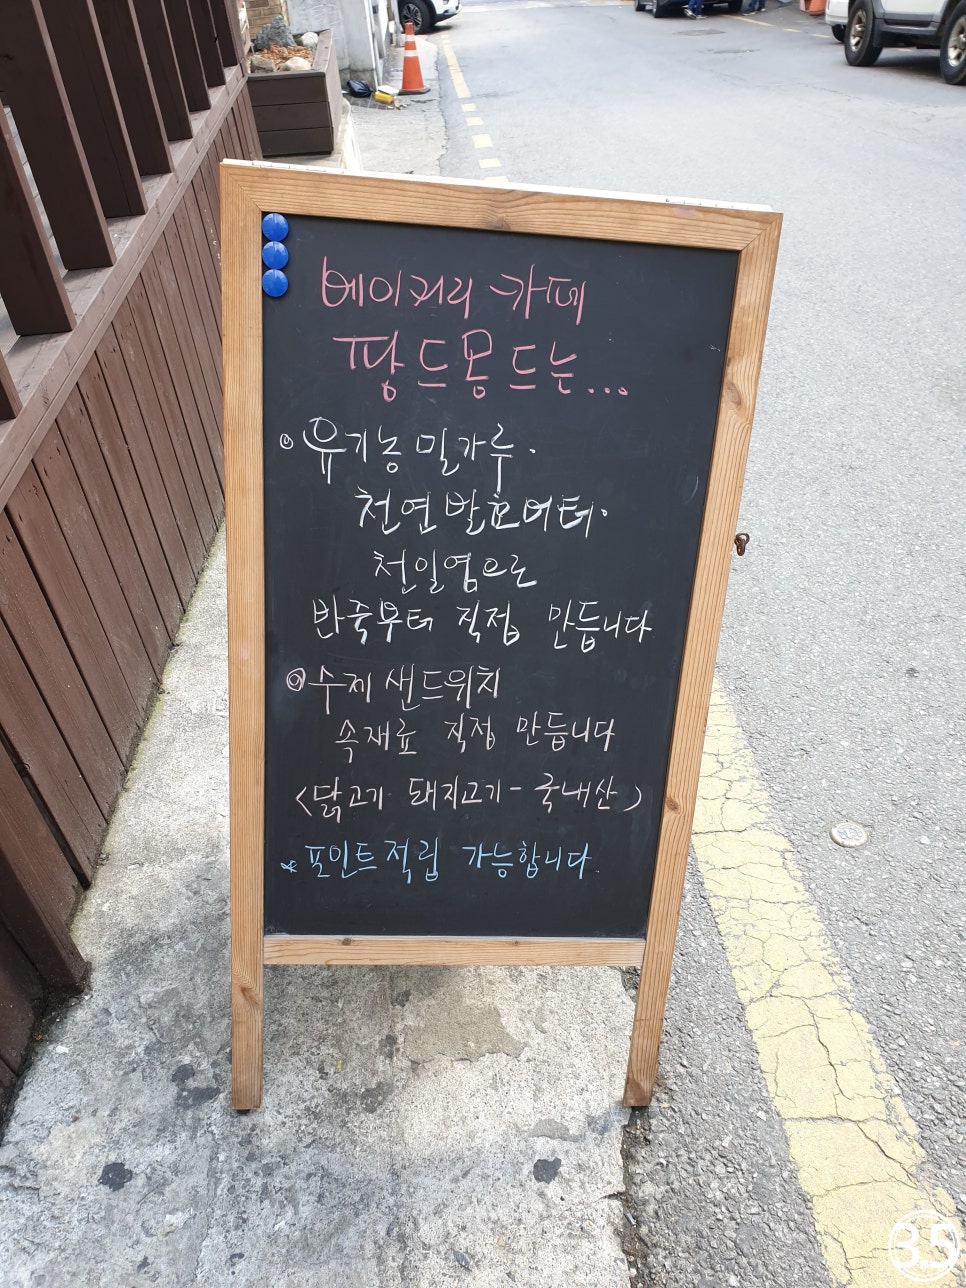 베이커리 카페
팡드몽드는...
◎ 유기농 밀가루.
천연 발효버터.
천일염으로
반죽부터 직접 만듭니다
◎ 수제 샌드위치
속재료 직접 만듭니다
<닭고기 돼지고기 - 국내산)
* 포인트적립 가능합니다.
3.5